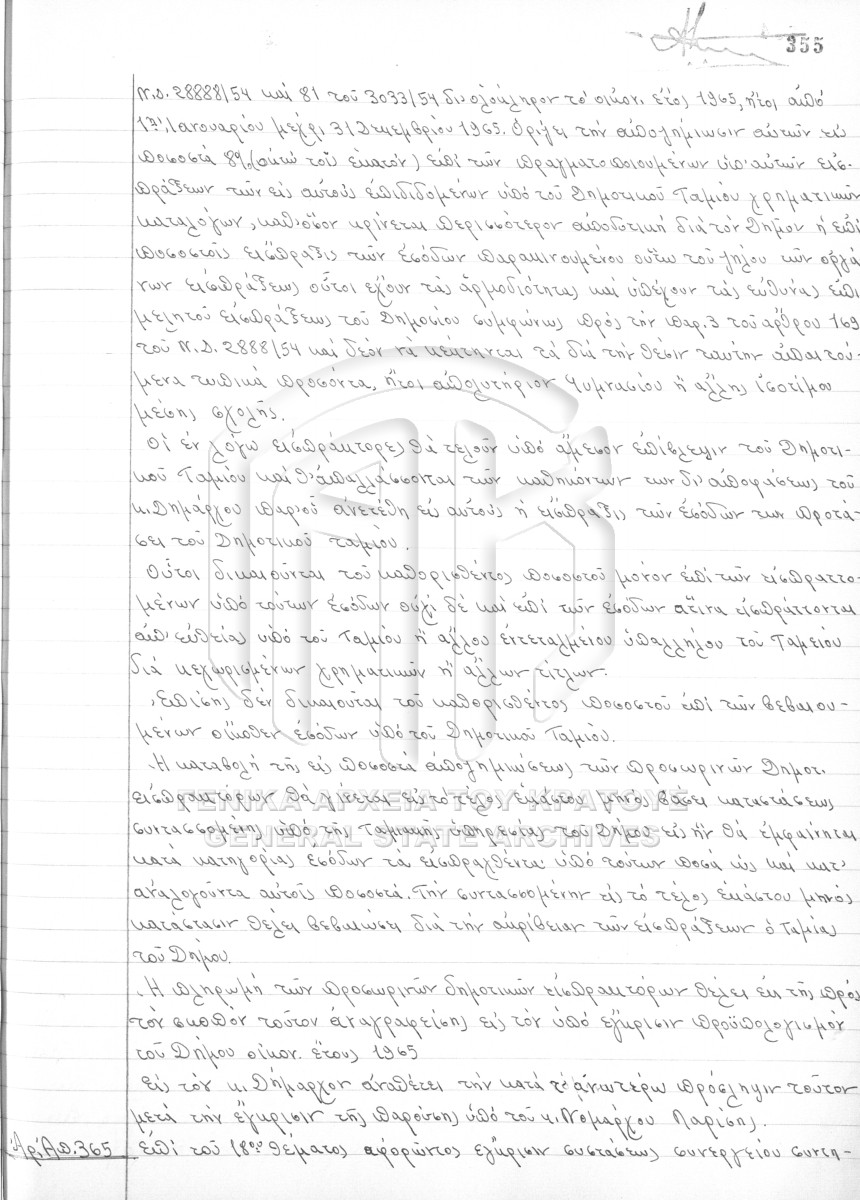 355
Ν.Δ. 28888/54 καί 81 τοῦ 3033/54 δι' ὁλόκληρον τό οἰκον. ἔτος 1965, ἤτοι ἀπό
1ης Ἰανουαρίου μέχρι 31 Δεκεμβρίου 1965. Ὁρίζει τήν ἀποζημίωσιν αὐτῶν εἰς
ποσοστά 8% (ὀκτώ τοῖς ἑκατόν) ἐπί τῶν πραγματοποιουμένων ὑπ' αὐτῶν εἰσ-
πράξεων τῶν εἰς αὐτούς ἐπιδιδομένων ὑπό τοῦ Δημοτικοῦ Ταμίου χρηματικῶν
καταλόγων, καθ' ὅσον κρίνεται περισσότερον ἀποδοτική διά τόν Δῆμον ἡ ἐπί
ποσοστοῖς εἴσπραξις τῶν ἐσόδων παρακινουμένου οὕτω τοῦ ζήλου τῶν ὀργά
νων εἰσπράξεως οὗτοι ἔχουν τάς ἁρμοδιότητας καί ὑπέχουν τάς εὐθύνας ἐπι
μελητοῦ εἰσπράξεως τοῦ Δημοσίου συμφώνως πρός τήν παρ. 3 τοῦ ἄρθρου 169
τοῦ Ν.Δ. 2888/54 καί δέον νά κέκτηνται τά διά τήν θέσιν ταύτην ἀπαιτού-
μενα τυπικά προσόντα, ἤτοι ἀπολυτήριον Γυμνασίου ἤ ἄλλης ἰσοτίμου
μέσης σχολῆς.
Οἱ ἐν λόγω εἰσπράκτορες θά τελοῦν ὑπό ἄμεσον ἐπίβλεψιν τοῦ Δημοτι-
κοῦ Ταμίου καί θ' ἀπαλλάσσονται τῶν καθηκόντων των δι' ἀποφάσεως τοῦ
κ. Δημάρχου παρ' οὗ ἀνετέθη εἰς αὐτούς ἡ εἴσπραξις τῶν ἐσόδων των προτά-
σει τοῦ Δημοτικοῦ ταμίου.
Οὗτοι δικαιοῦνται τοῦ καθορισθέντος ποσοστοῦ μόνον ἐπί τῶν εἰσπραττο-
μένων ὑπό τούτων ἐσόδων οὐχί δέ καί ἐπί τῶν ἐσόδων ἅτινα εἰσπράττονται
ἀπ' εὐθείας ὑπό τοῦ Ταμίου ἤ ἄλλου ἐντεταλμένου ὑπαλλήλου τοῦ Ταμείου
διά κεχωρισμένων χρηματικῶν ἤ ἄλλων τίτλων.
Ἐπίσης δέν δικαιοῦται τοῦ καθορισθέντος ποσοστοῦ ἐπί τῶν βεβαιου-
μένων οἴκοθεν ἐσόδων ὑπό τοῦ Δημοτικοῦ Ταμίου.
Ἡ καταβολή τῆς εἰς ποσοστά ἀποζημιώσεως τῶν προσωρινῶν Δημοτ.
εἰσπρακτόρων θά γίνεται εἰς τό τέλος ἑκάστου μηνός βάσει καταστάσεως
συντασσομένης ὑπό τῆς Ταμιακῆς ὑπηρεσίας τοῦ Δήμου εἰς ἥν θά ἐμφαίνηται
κατά κατηγορίας ἐσόδων τά εἰσπραχθέντα ὑπό τούτων ποσά ὡς καί κατ'
ἀναλογοῦντα αὐτοῖς ποσοστά. Τήν συντασσομένην εἰς τό τέλος ἑκάστου μηνός
κατάστασιν θέλει βεβαιώσει διά τήν ἀκρίβειαν τῶν εἰσπράξεων ὁ Ταμίας
τοῦ Δήμου.
Ἡ πληρωμή τῶν προσωρινῶν δημοτικῶν εἰσπρακτόρων θέλει ἐκ τῆς πρός
τόν σκοπόν τοῦτον ἀναγραφείσης εἰς τόν ὑπό ἔγκρισιν προϋπολογισμόν
τοῦ Δήμου οἰκον. ἔτους 1965
Εἰς τόν κ. Δήμαρχον ἀναθέτει τήν κατά τ' ἀνωτέρω πρόσληψιν τούτων
μετά τήν ἔγκρισιν τῆς παρούσης ὑπό τοῦ κ. Νομάρχου Λαρίσης.
Ἀρ. Ἀπ. 365 Ἐπί τοῦ 18ου θέματος ἀφορῶντος ἔγκρισιν συστάσεως συνεργείου συντη-
ΓΕΝΙΚΑ ΑΡΧΕΙΑ ΤΟΥ ΚΡΑΤΟΥΣ
GENERAL STATE ARCHIVES